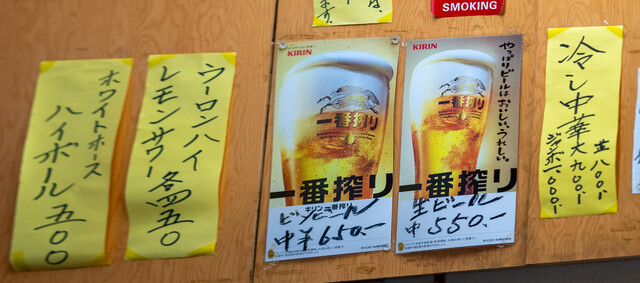 ます。
SMOKING
ホワイトホース
ハイボール 五〇〇
ウーロンハイ
レモンサワー 各四五〇
KIRIN
一番搾り
一番搾り
キリン一番搾り
ビンビール
中¥650.-
KIRIN
やっぱりビールはおいしい。うれしい。
一番搾り
生ビール
中 550.-
冷し中華
並八〇〇.-
大九〇〇.-
ジャンボ一、〇〇〇.-